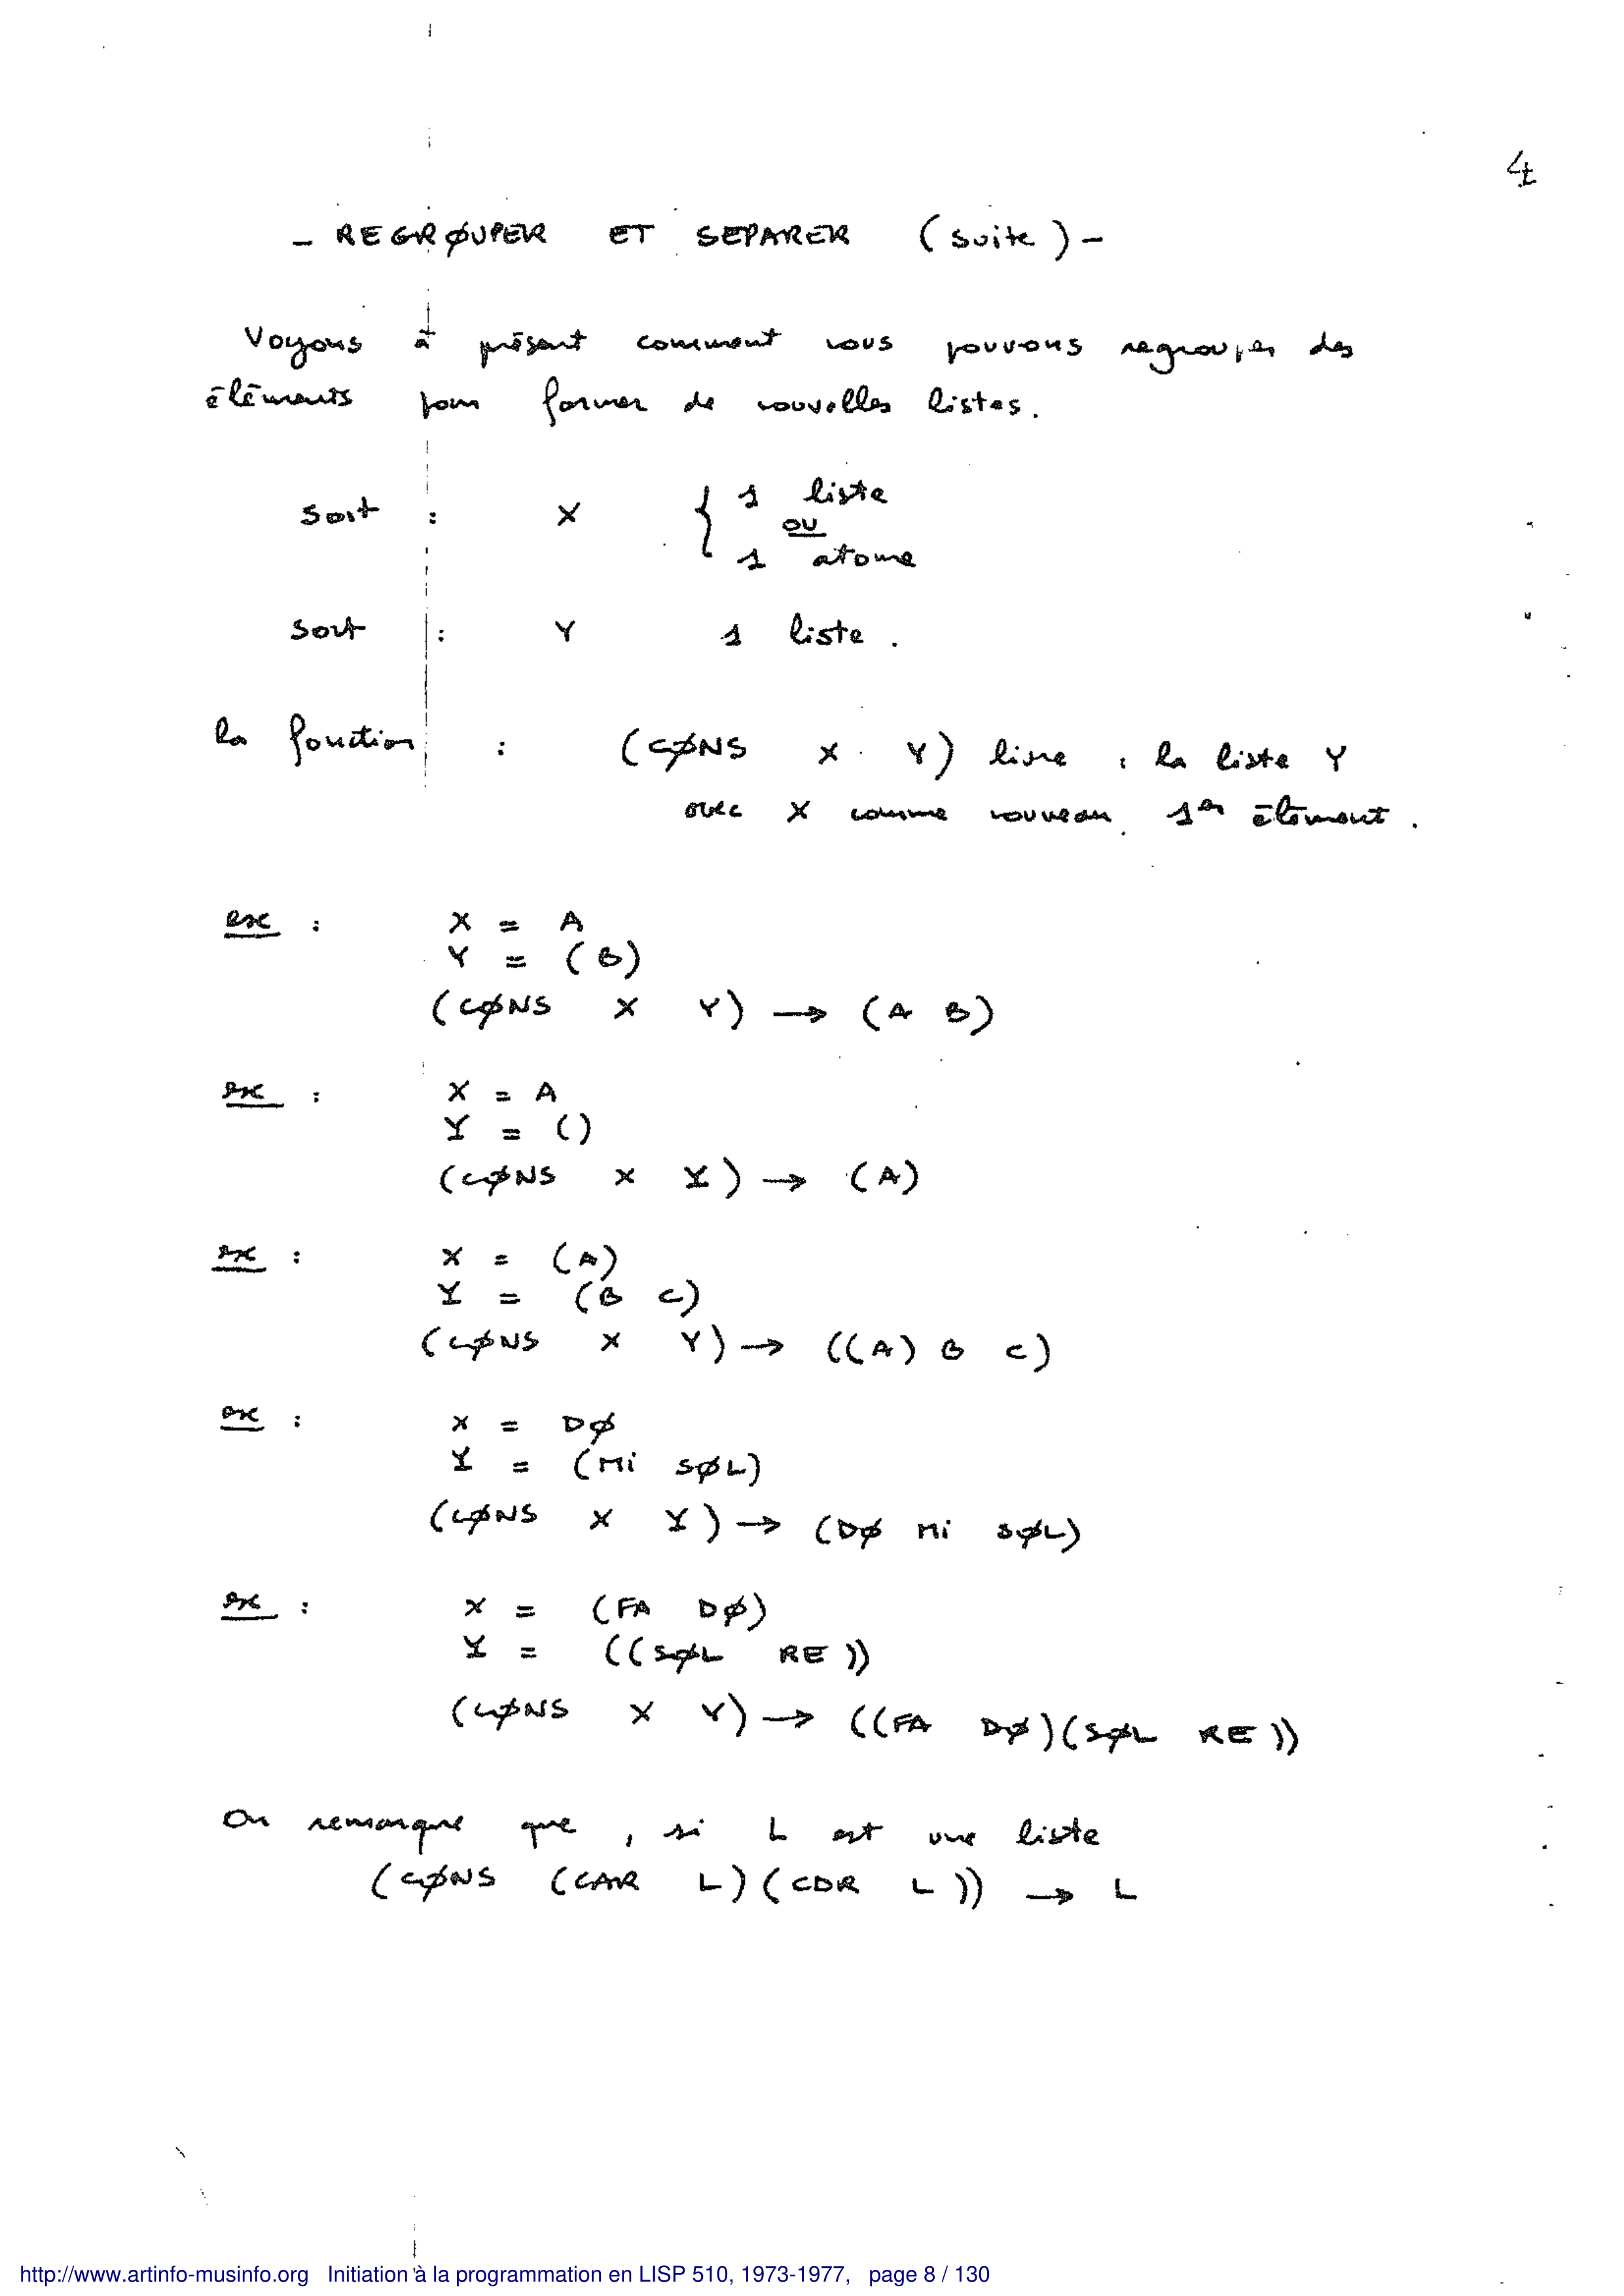 4
- REGRØUPER ET SEPARER (suite) -
Voyons à présent comment nous pouvons regrouper des
éléments pour former de nouvelles listes.
soit : X { 1 liste
ou
1 atome
soit : Y 1 liste.
la fonction : (CØNS X Y) livre : la liste Y
avec X comme nouveau 1er élément.
ex : X = A
Y = (B)
(CØNS X Y) → (A B)
ex : X = A
Y = ()
(CØNS X Y) → (A)
ex : X = (A)
Y = (B C)
(CØNS X Y) → ((A) B C)
ex : X = DØ
Y = (Mi SØL)
(CØNS X Y) → (DØ Mi SØL)
ex : X = (FA DØ)
Y = ((SØL RE))
(CØNS X Y) → ((FA DØ)(SØL RE))
On remarque que, si L est une liste
(CØNS (CAR L)(CDR L)) → L
http://www.artinfo-musinfo.org Initiation à la programmation en LISP 510, 1973-1977, page 8 / 130